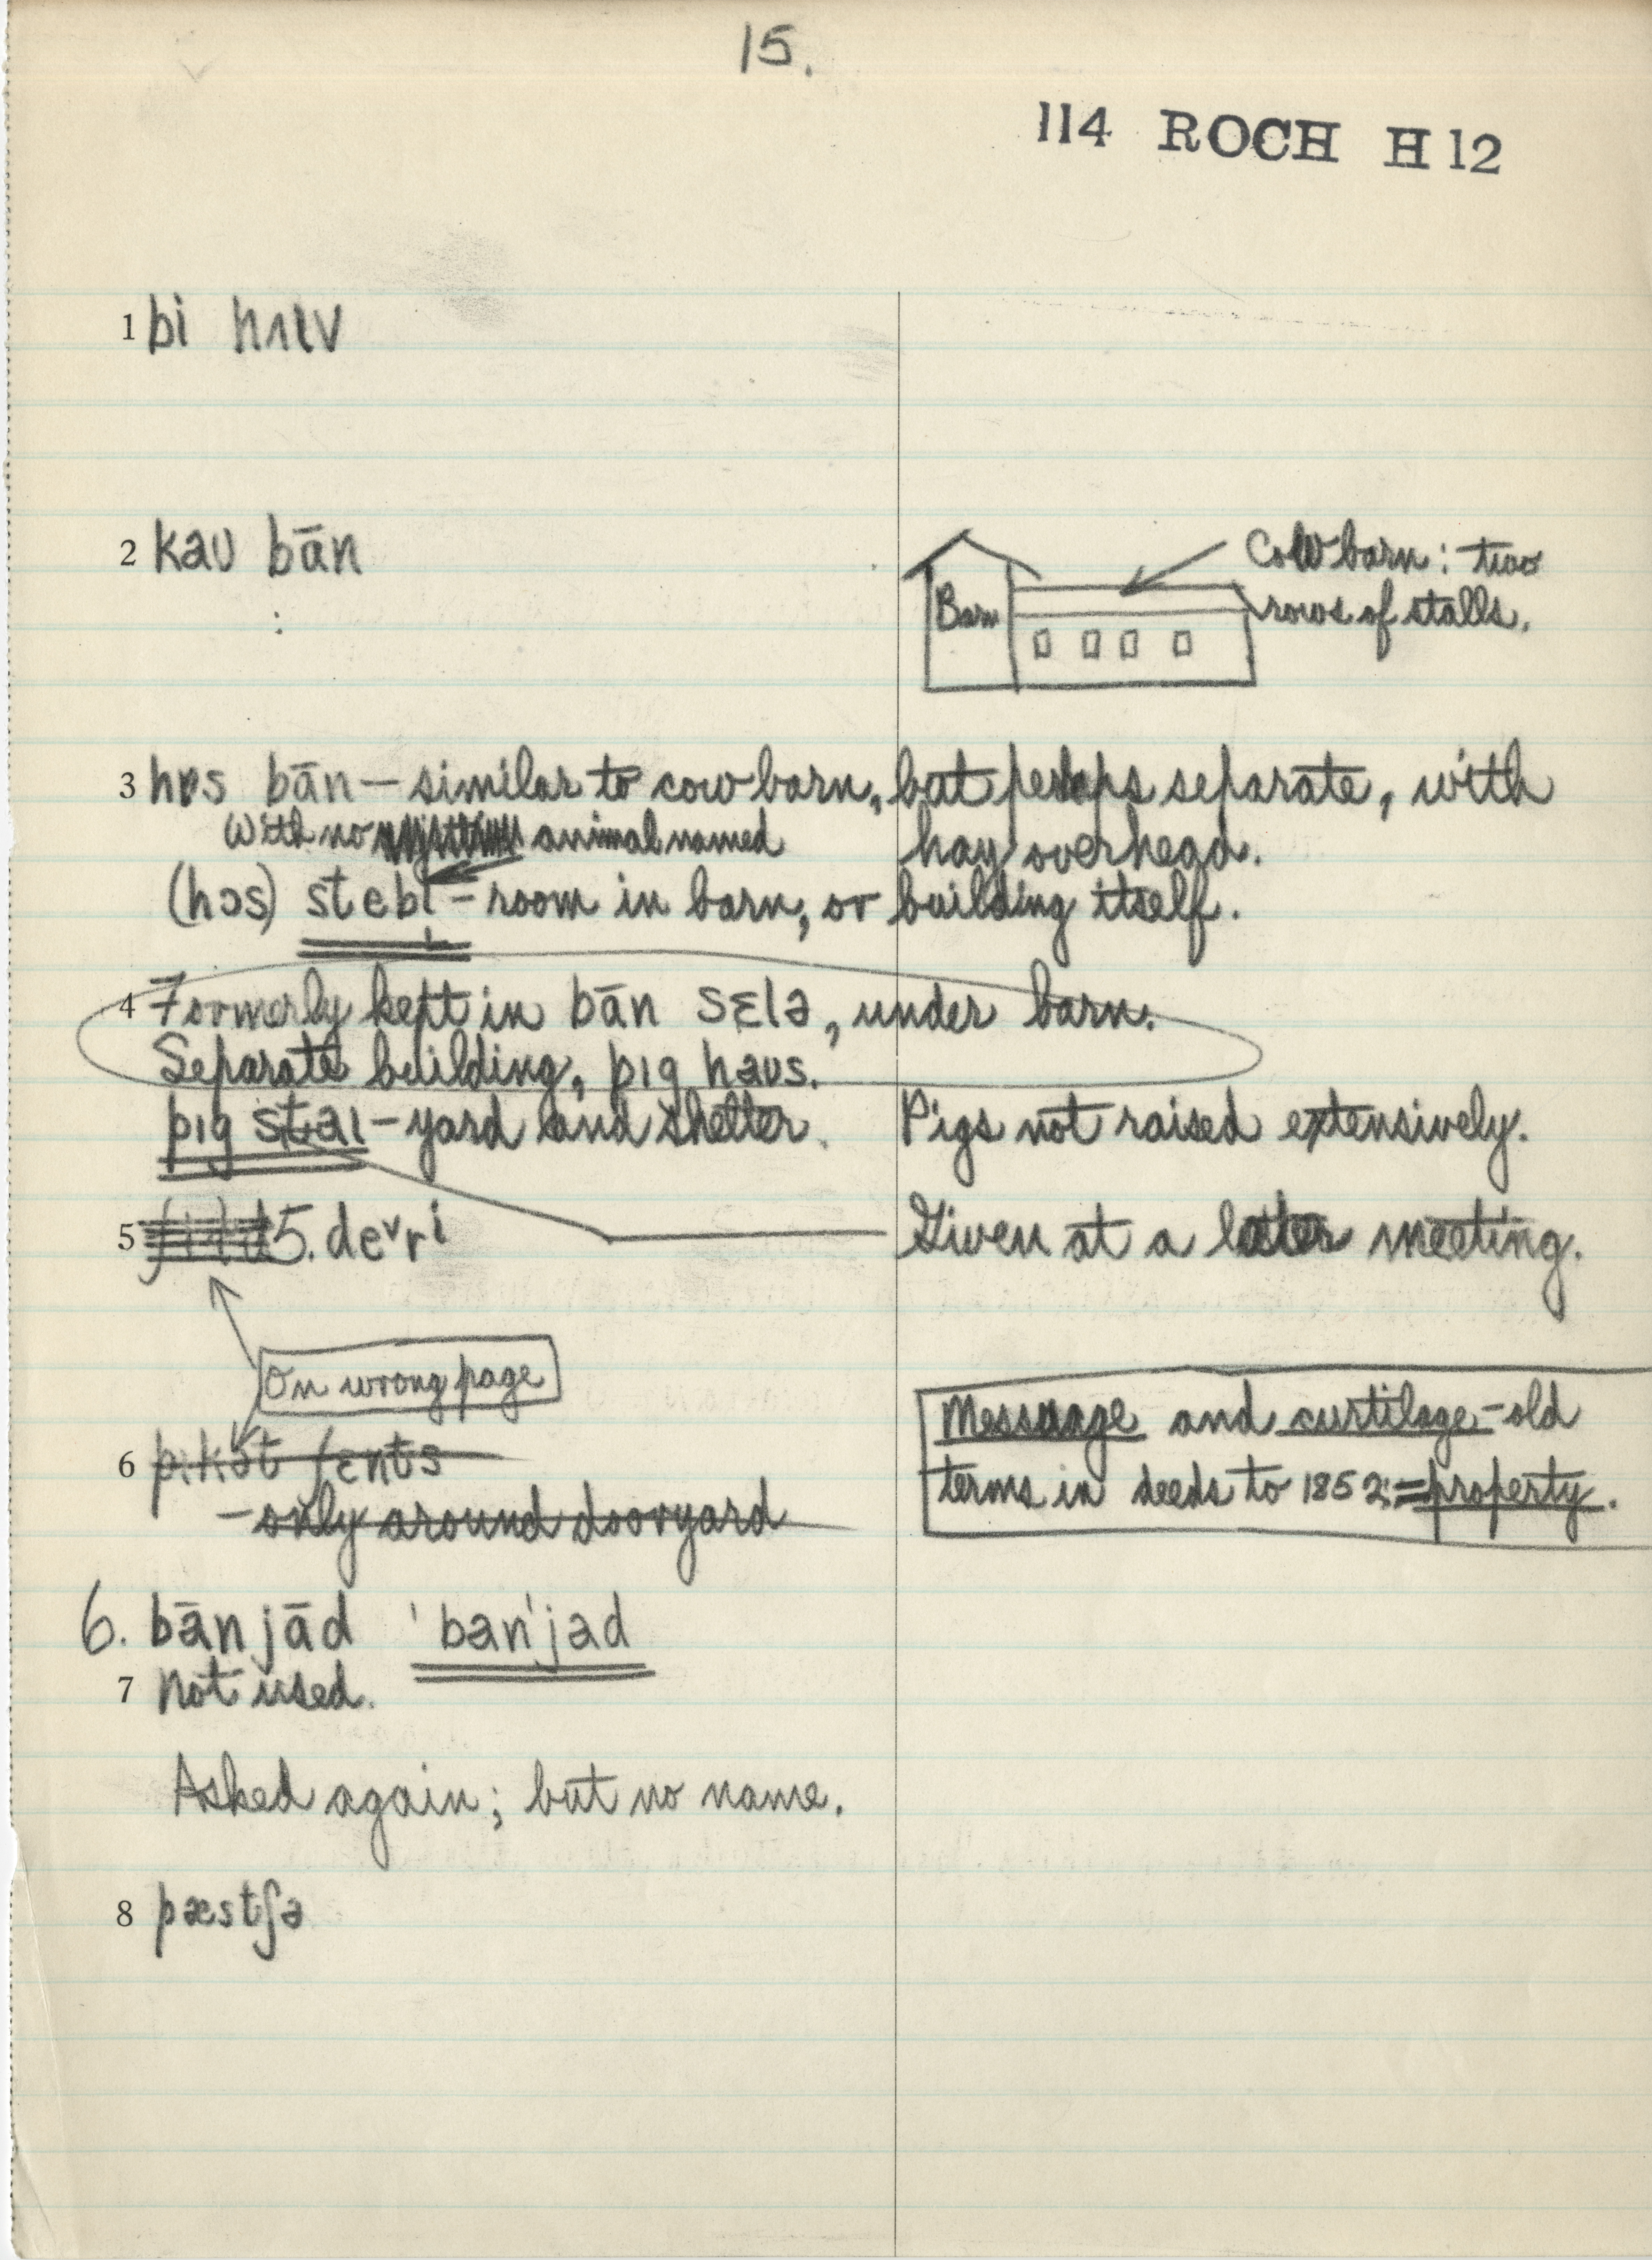 15.
114 ROCH H 12
1 bi haɪv
2 kaʊ bān
:
Barn
Cow barn: two
rows of stalls.
3 hɒs bān – similar to cow barn, but perhaps separate, with
hay overhead.
With no animal named
(hɔs) stebl̩ – room in barn, or building itself.
4 Formerly kept in bān sɛlə, under barn.
Separate building, pɪg haʊs.
pɪg staɪ – yard and shelter. Pigs not raised extensively.
5 5. deᵛrⁱ Given at a later meeting.
On wrong page
6 pikət fents
– only around dooryard
Messuage and curtilage – old
terms in deeds to 1852; = property.
6. bān jād 'ban'jad
7 Not used.
Asked again; but no name.
8 pæstʃə